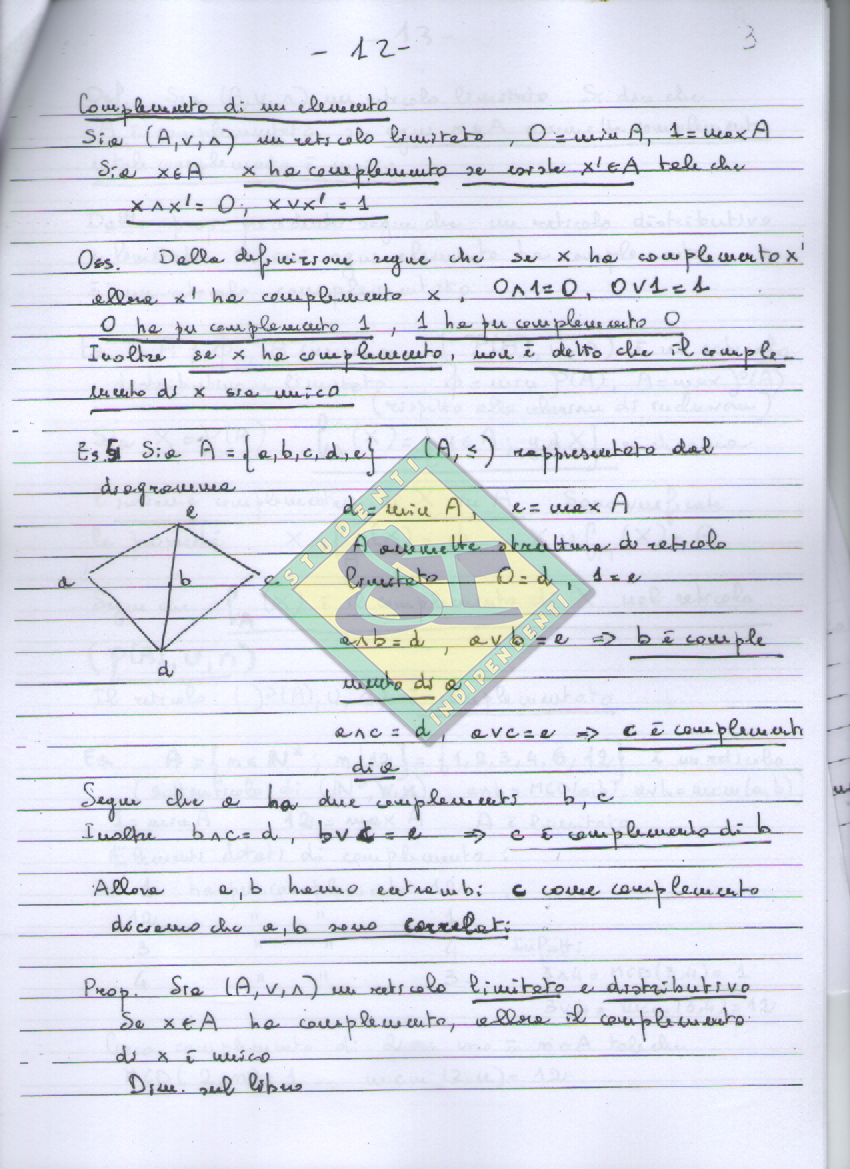 - 12-
3
Complemento di un elemento
Sia (A,∨,∧) un reticolo limitato, 0=min A, 1=max A
Sia x∈A x ha complemento se esiste x'∈A tale che
x∧x'=0, x∨x'=1
Oss. Dalla definizione segue che se x ha complemento x'
allora x' ha complemento x, 0∧1=0, 0∨1=1
0 ha per complemento 1, 1 ha per complemento 0
Inoltre se x ha complemento, non è detto che il comple-
mento di x sia unico
Es.5 Sia A={a,b,c,d,e} (A,≤) rappresentato dal
diagramma
d=min A, e=max A
e
A ammette struttura di reticolo
a
b
c
limitato 0=d, 1=e
a∧b=d, a∨b=e ⇒ b è comple
d
mento di a
a∧c=d, a∨c=e ⇒ c è complement
di a
Segue che a ha due complementi b, c
Inoltre b∧c=d, b∨c=e ⇒ c è complemento di b
Allora a,b hanno entrambi c come complemento
diciamo che a,b sono correlati
Prop. Sia (A,∨,∧) un reticolo limitato e distributivo
Se x∈A ha complemento, allora il complemento
di x è unico
Dim. sul libro
STUDENTI
INDIPENDENTI